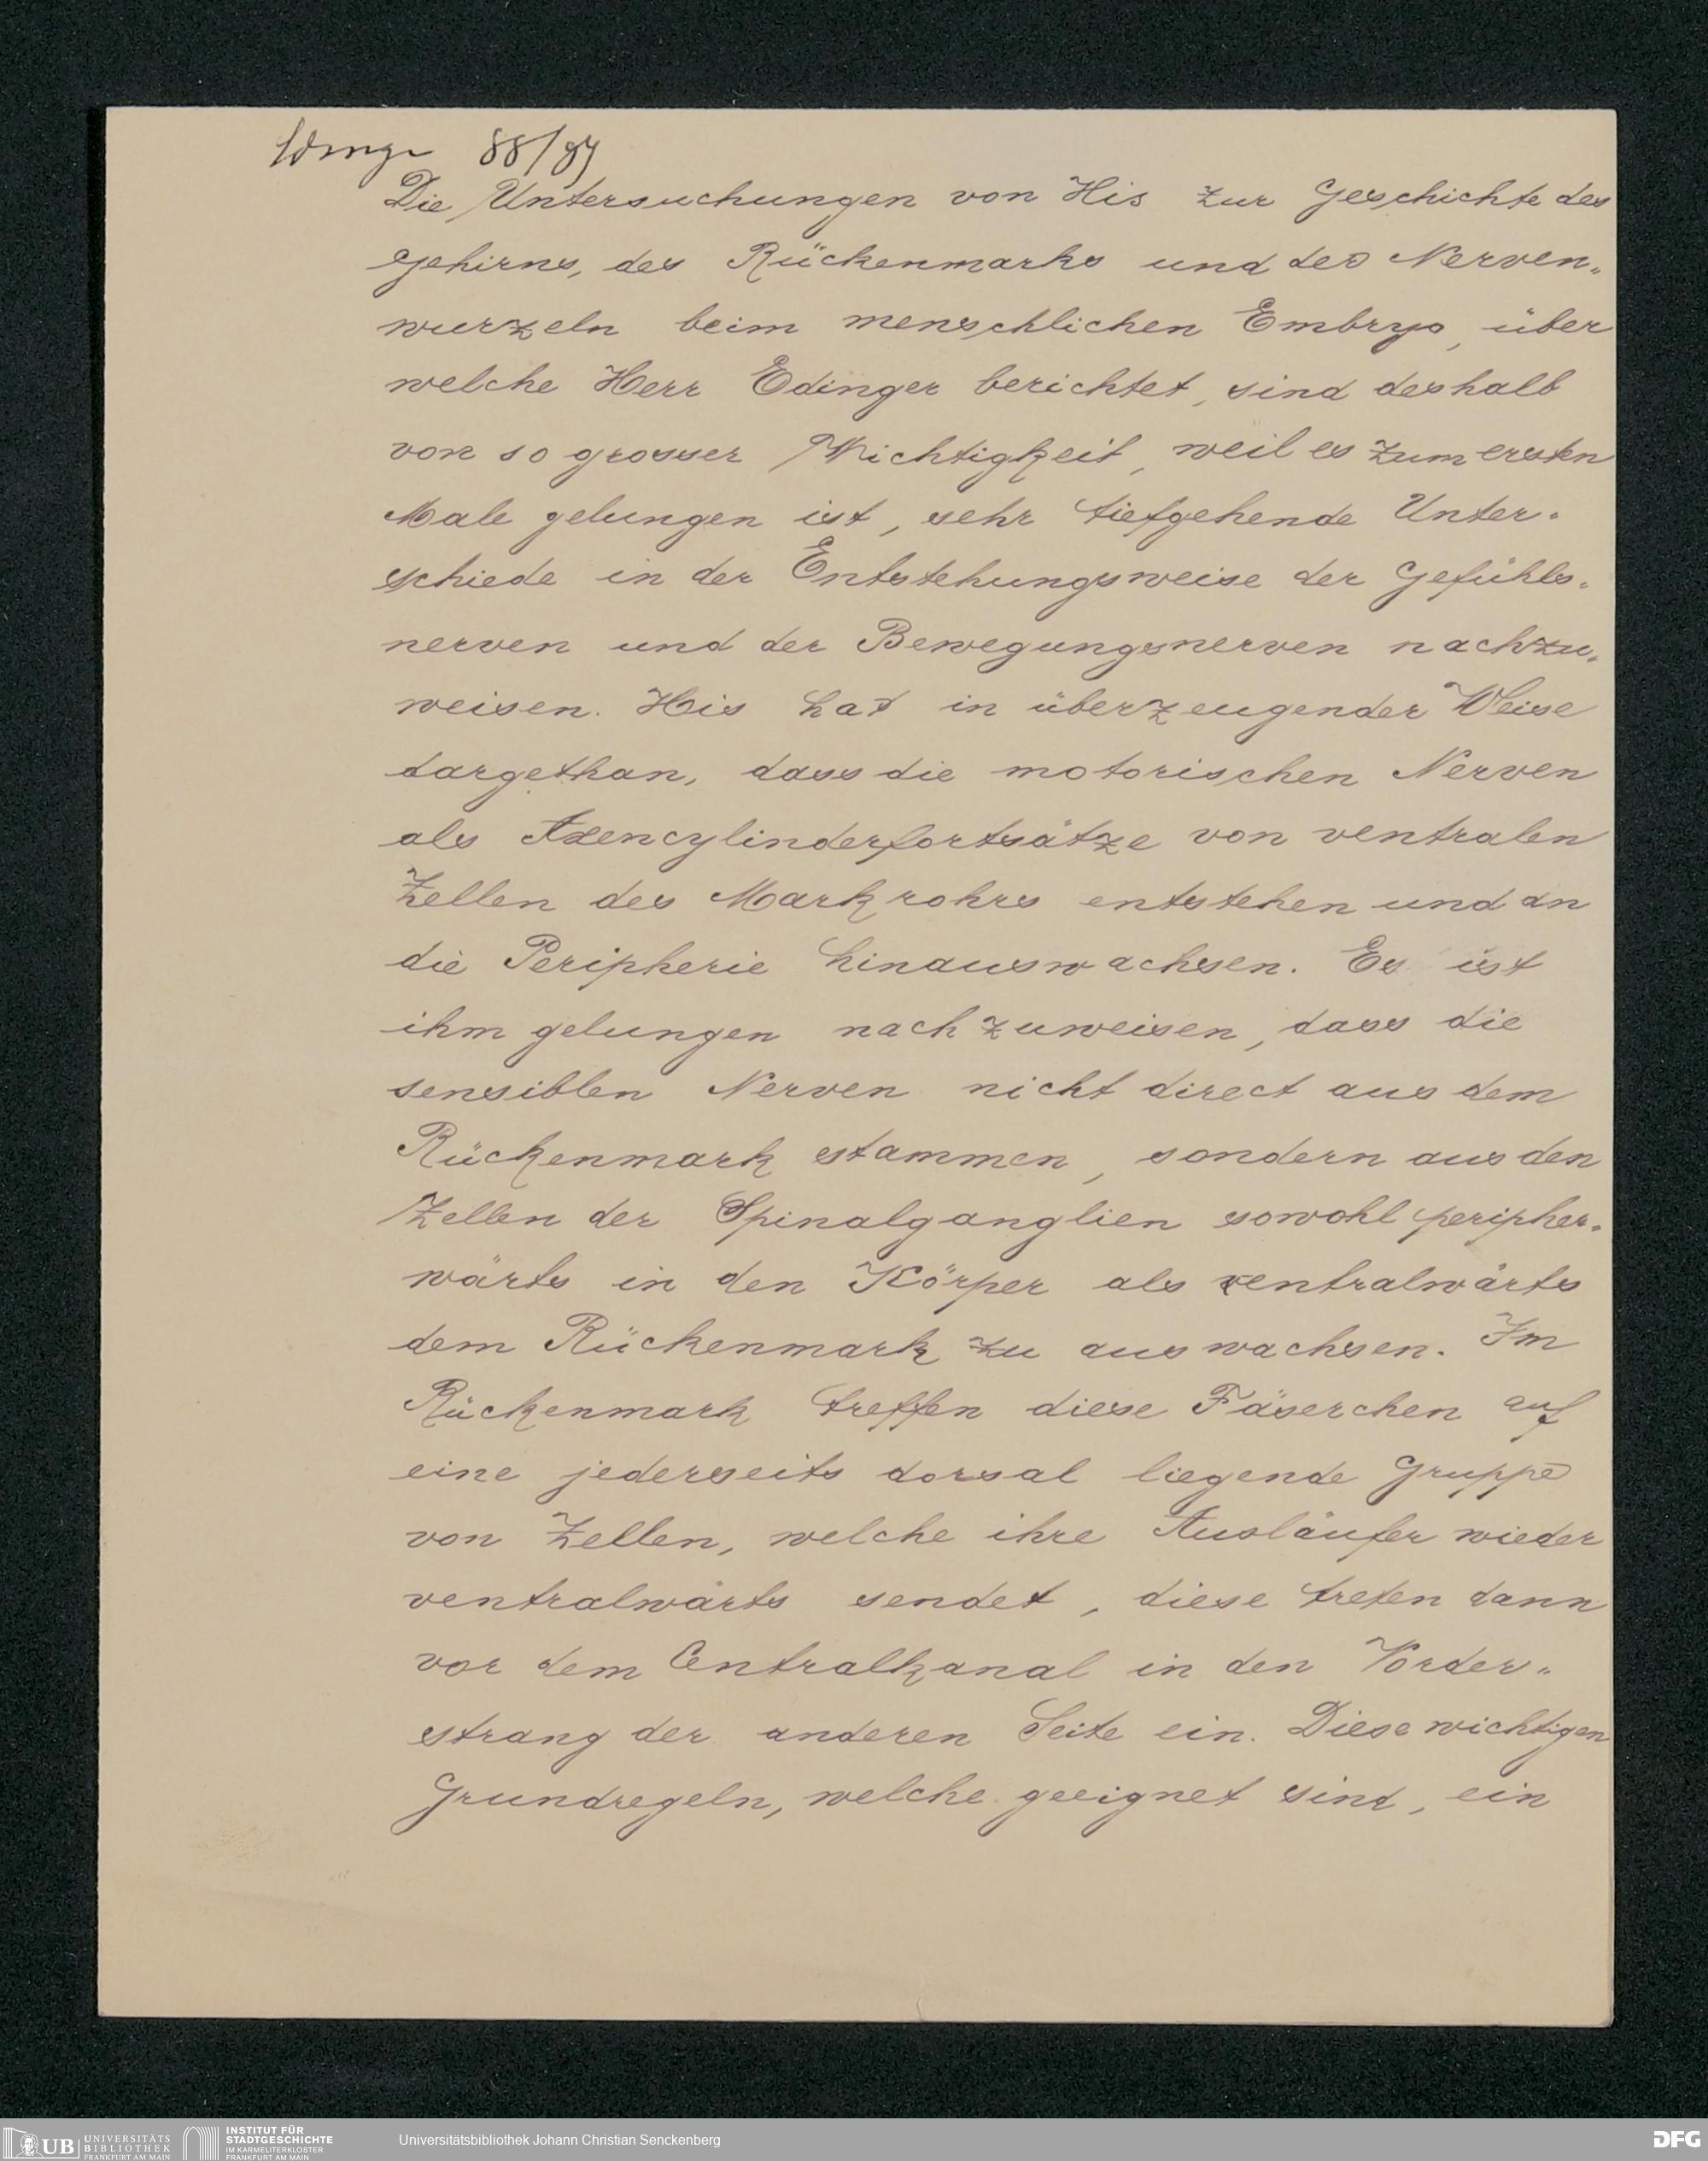 Edinger 88/89
Die Untersuchungen von His zur Geschichte des
Gehirns, des Rückenmarks und der Nerven„
wurzeln beim menschlichen Embryo, über
welche Herr Edinger berichtet, sind deshalb
von so grosser Wichtigkeit, weil es zum ersten
Male gelungen ist, sehr tiefgehende Unter-
schiede in der Entstehungsweise der Gefühls-
nerven und der Bewegungsnerven nachzu-
weisen. His hat in überzeugender Weise
dargethan, dass die motorischen Nerven
als Axencylinderfortsätze von ventralen
Zellen des Markrohrs entstehen und an
die Peripherie hinauswachsen. Es ist
ihm gelungen nachzuweisen, dass die
sensiblen Nerven nicht direct aus dem
Rückenmark stammen, sondern aus den
Zellen der Spinalganglien sowohl peripher-
wärts in den Körper als centralwärts
dem Rückenmark zu auswachsen. Im
Rückenmark treffen diese Fäserchen auf
eine jederseits dorsal liegende Gruppe
von Zellen, welche ihre Ausläufer wieder
ventralwärts sendet, diese treten dann
vor dem Centralkanal in den Vorder„
strang der anderen Seite ein. Diese wichtigen
Grundregeln, welche geeignet sind, ein
UB UNIVERSITÄTS BIBLIOTHEK FRANKFURT AM MAIN
INSTITUT FÜR STADTGESCHICHTE IM KARMELITERKLOSTER FRANKFURT AM MAIN
Universitätsbibliothek Johann Christian Senckenberg
DFG